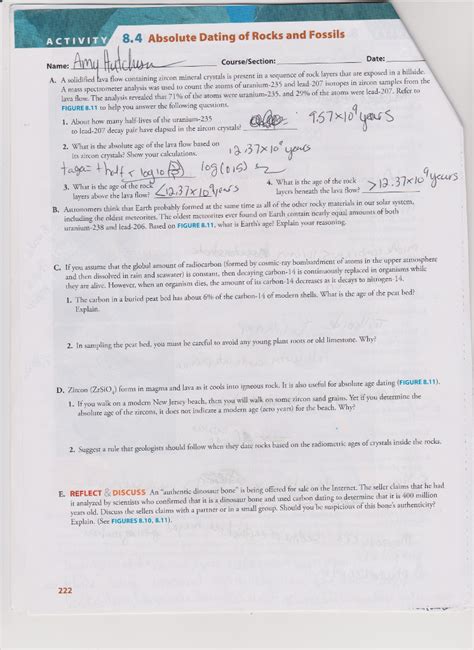 ACTIVITY 8.4 Absolute Dating of Rocks and Fossils
Name: Amy Hutchison Course/Section: Date:
A. A solidified lava flow containing zircon mineral crystals is present in a sequence of rock layers that are exposed in a hillside.
A mass spectrometer analysis was used to count the atoms of uranium-235 and lead-207 isotopes in zircon samples from the
lava flow. The analysis revealed that 71% of the atoms were uranium-235, and 29% of the atoms were lead-207. Refer to
FIGURE 8.11 to help you answer the following questions.
1. About how many half-lives of the uranium-235
to lead-207 decay pair have elapsed in the zircon crystals? 9.57×10⁹ years
2. What is the absolute age of the lava flow based on
its zircon crystals? Show your calculations. 12.37×10⁹ years
log(0.5)
3. What is the age of the rock
layers above the lava flow? <12.37×10⁹ years
4. What is the age of the rock
layers beneath the lava flow? >12.37×10⁹ years
B. Astronomers think that Earth probably formed at the same time as all of the other rocky materials in our solar system,
including the oldest meteorites. The oldest meteorites ever found on Earth contain nearly equal amounts of both
uranium-238 and lead-206. Based on FIGURE 8.11, what is Earth's age? Explain your reasoning.
C. If you assume that the global amount of radiocarbon (formed by cosmic-ray bombardment of atoms in the upper atmosphere
and then dissolved in rain and seawater) is constant, then decaying carbon-14 is continuously replaced in organisms while
they are alive. However, when an organism dies, the amount of its carbon-14 decreases as it decays to nitrogen-14.
1. The carbon in a buried peat bed has about 6% of the carbon-14 of modern shells. What is the age of the peat bed?
Explain.
2. In sampling the peat bed, you must be careful to avoid any young plant roots or old limestone. Why?
D. Zircon (ZrSiO₄) forms in magma and lava as it cools into igneous rock. It is also useful for absolute age dating (FIGURE 8.11).
1. If you walk on a modern New Jersey beach, then you will walk on some zircon sand grains. Yet if you determine the
absolute age of the zircons, it does not indicate a modern age (zero years) for the beach. Why?
2. Suggest a rule that geologists should follow when they date rocks based on the radiometric ages of crystals inside the rocks.
E. REFLECT & DISCUSS An "authentic dinosaur bone" is being offered for sale on the Internet. The seller claims that he had
it analyzed by scientists who confirmed that it is a dinosaur bone and used carbon dating to determine that it is 400 million
years old. Discuss the sellers claims with a partner or in a small group. Should you be suspicious of this bone's authenticity?
Explain. (See FIGURES 8.10, 8.11).
222